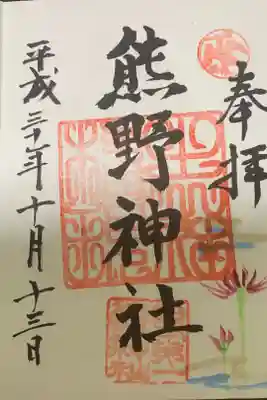 奉拝
熊野神社
平成三十年十月十三日